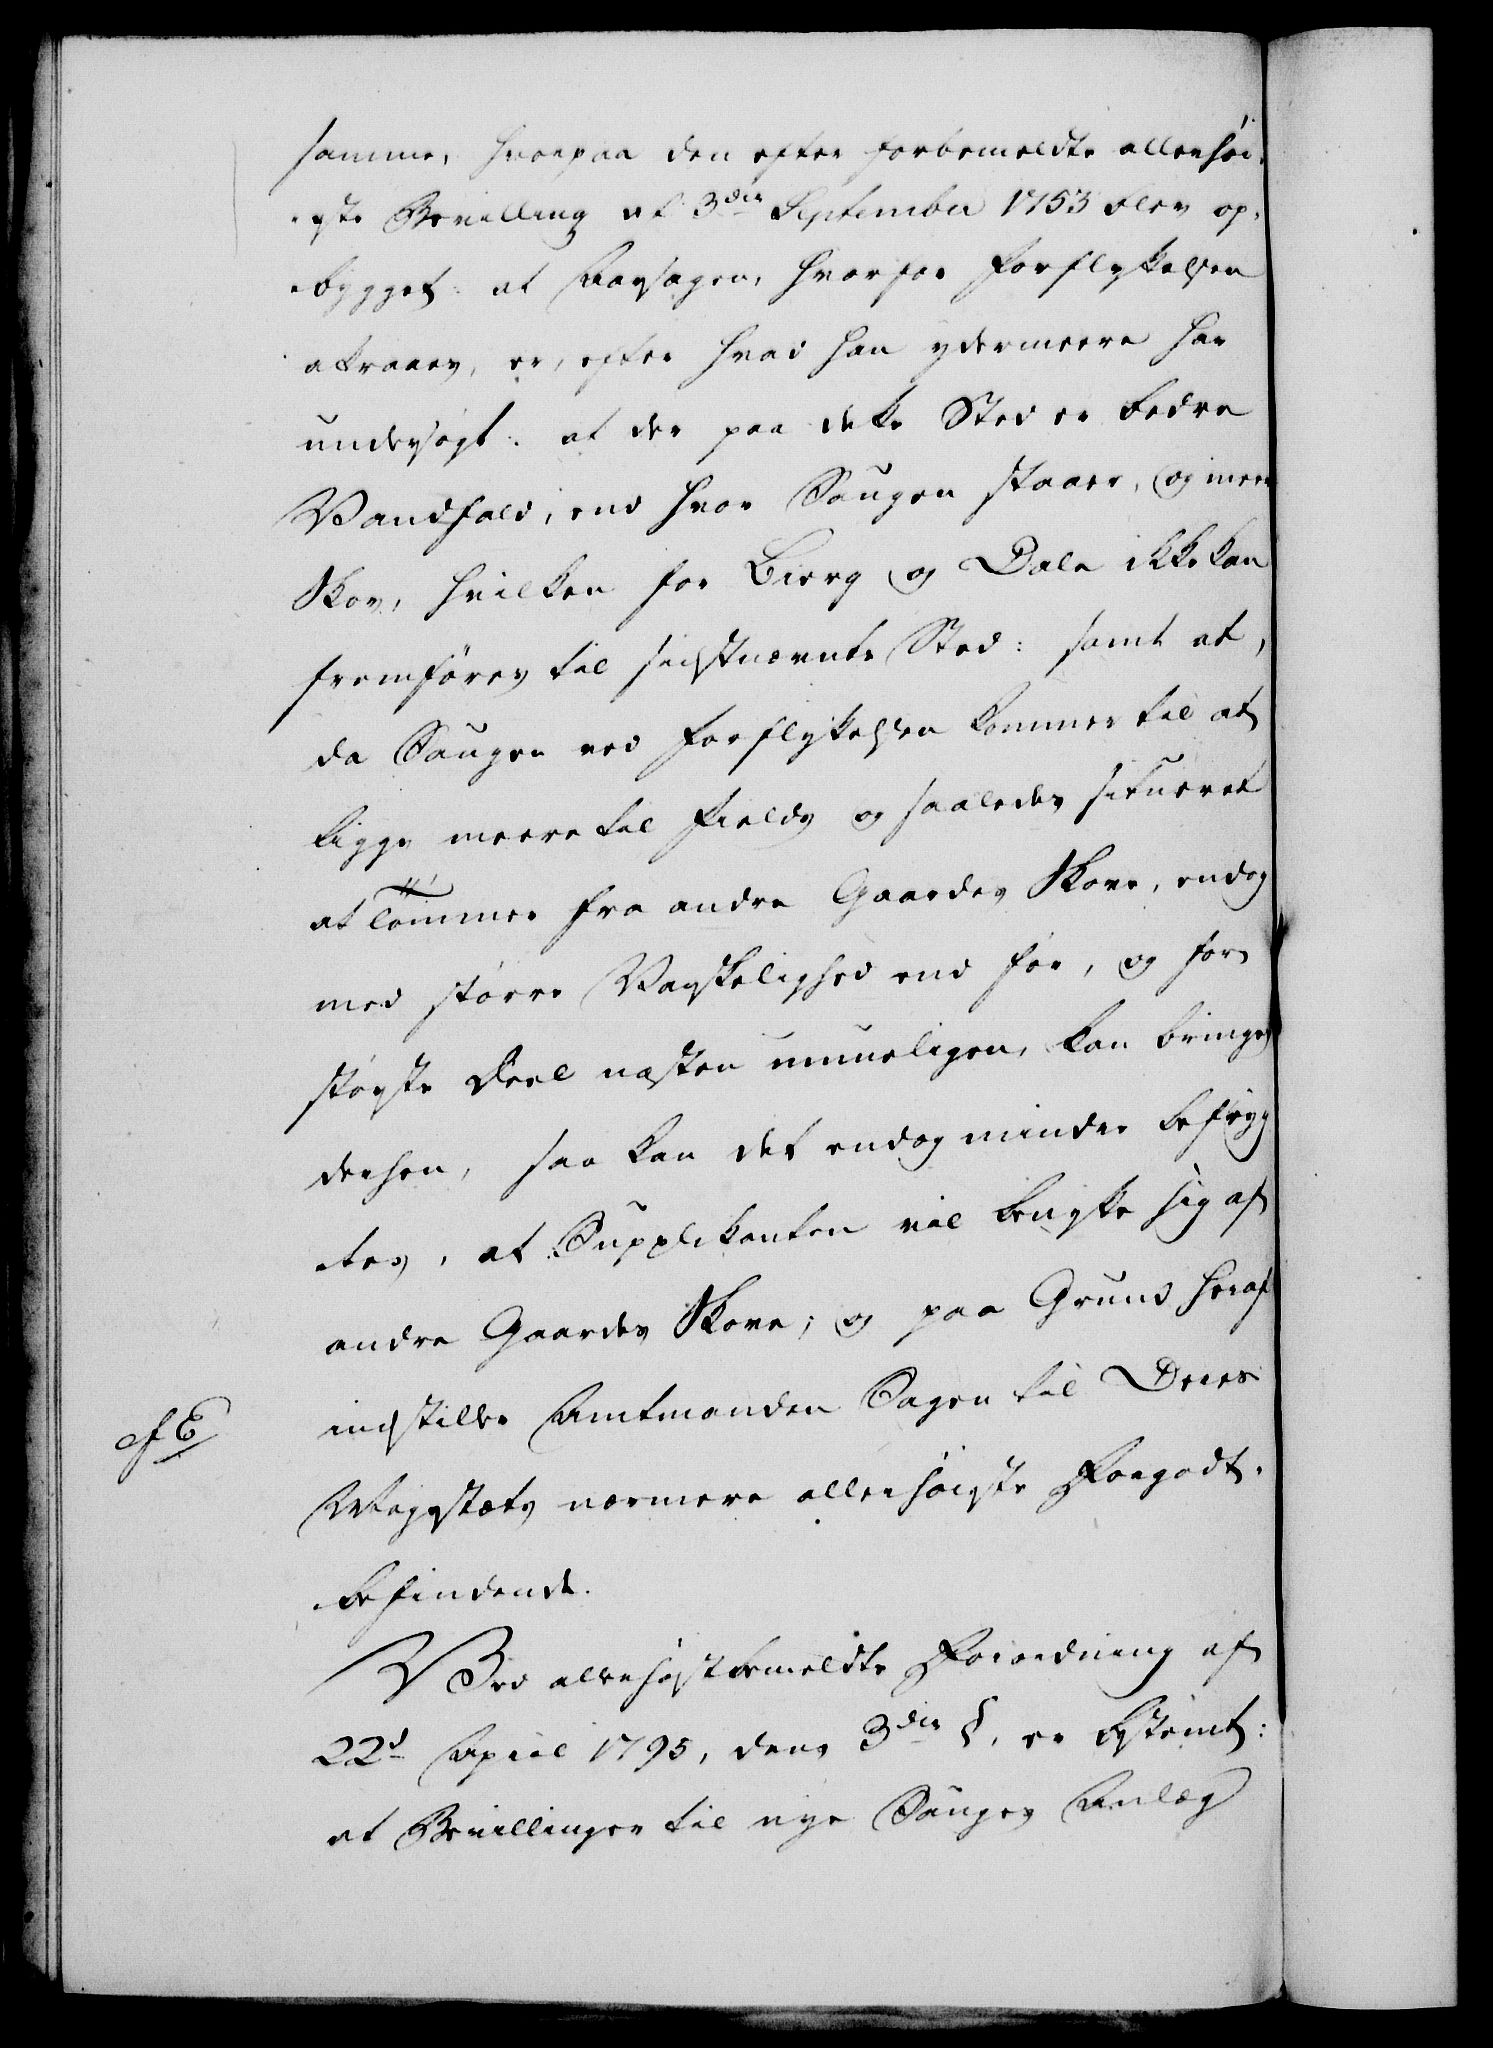 samme, hvorpaa den efter forbemeldte allerhøi-
-gste Bevilling af 3die September 1753 blev op-
-bygget: at Aarsagen, hvorfor Forflyttelsen
attraaes, er, efter hvad han ydermeere har
undersøgt: at der paa dette Sted er bedre
Vandfald, end hvor Saugen staaer, og meer
Skov, hvilken for Bierg og Dale ikke kan
fremføres til sidstnævnte Sted: samt at,
da Saugen ved Forflyttelsen kommer til at
ligge meere til Fields og saaledes situeret
at Tømmer fra andre Gaardes Skove, endog
med større Vanskelighed end før, og for
største Deel næsten umueligen, kan bringes
derhen, saa kan det endog mindre befryg
-tes, at Supplikanten vil benytte sig af
andre Gaardes Skove; og paa Grund heraf
indstiller Amtmanden Sagen til Deres
Majestæts nærmere allerhøigste Forgodt-
-befindende.
Ved allerhøistbemeldte Forordning af
22d April 1795, dens 3die §, er bestemt:
at Bevillinger til nye Sauges Anlæg
cf E